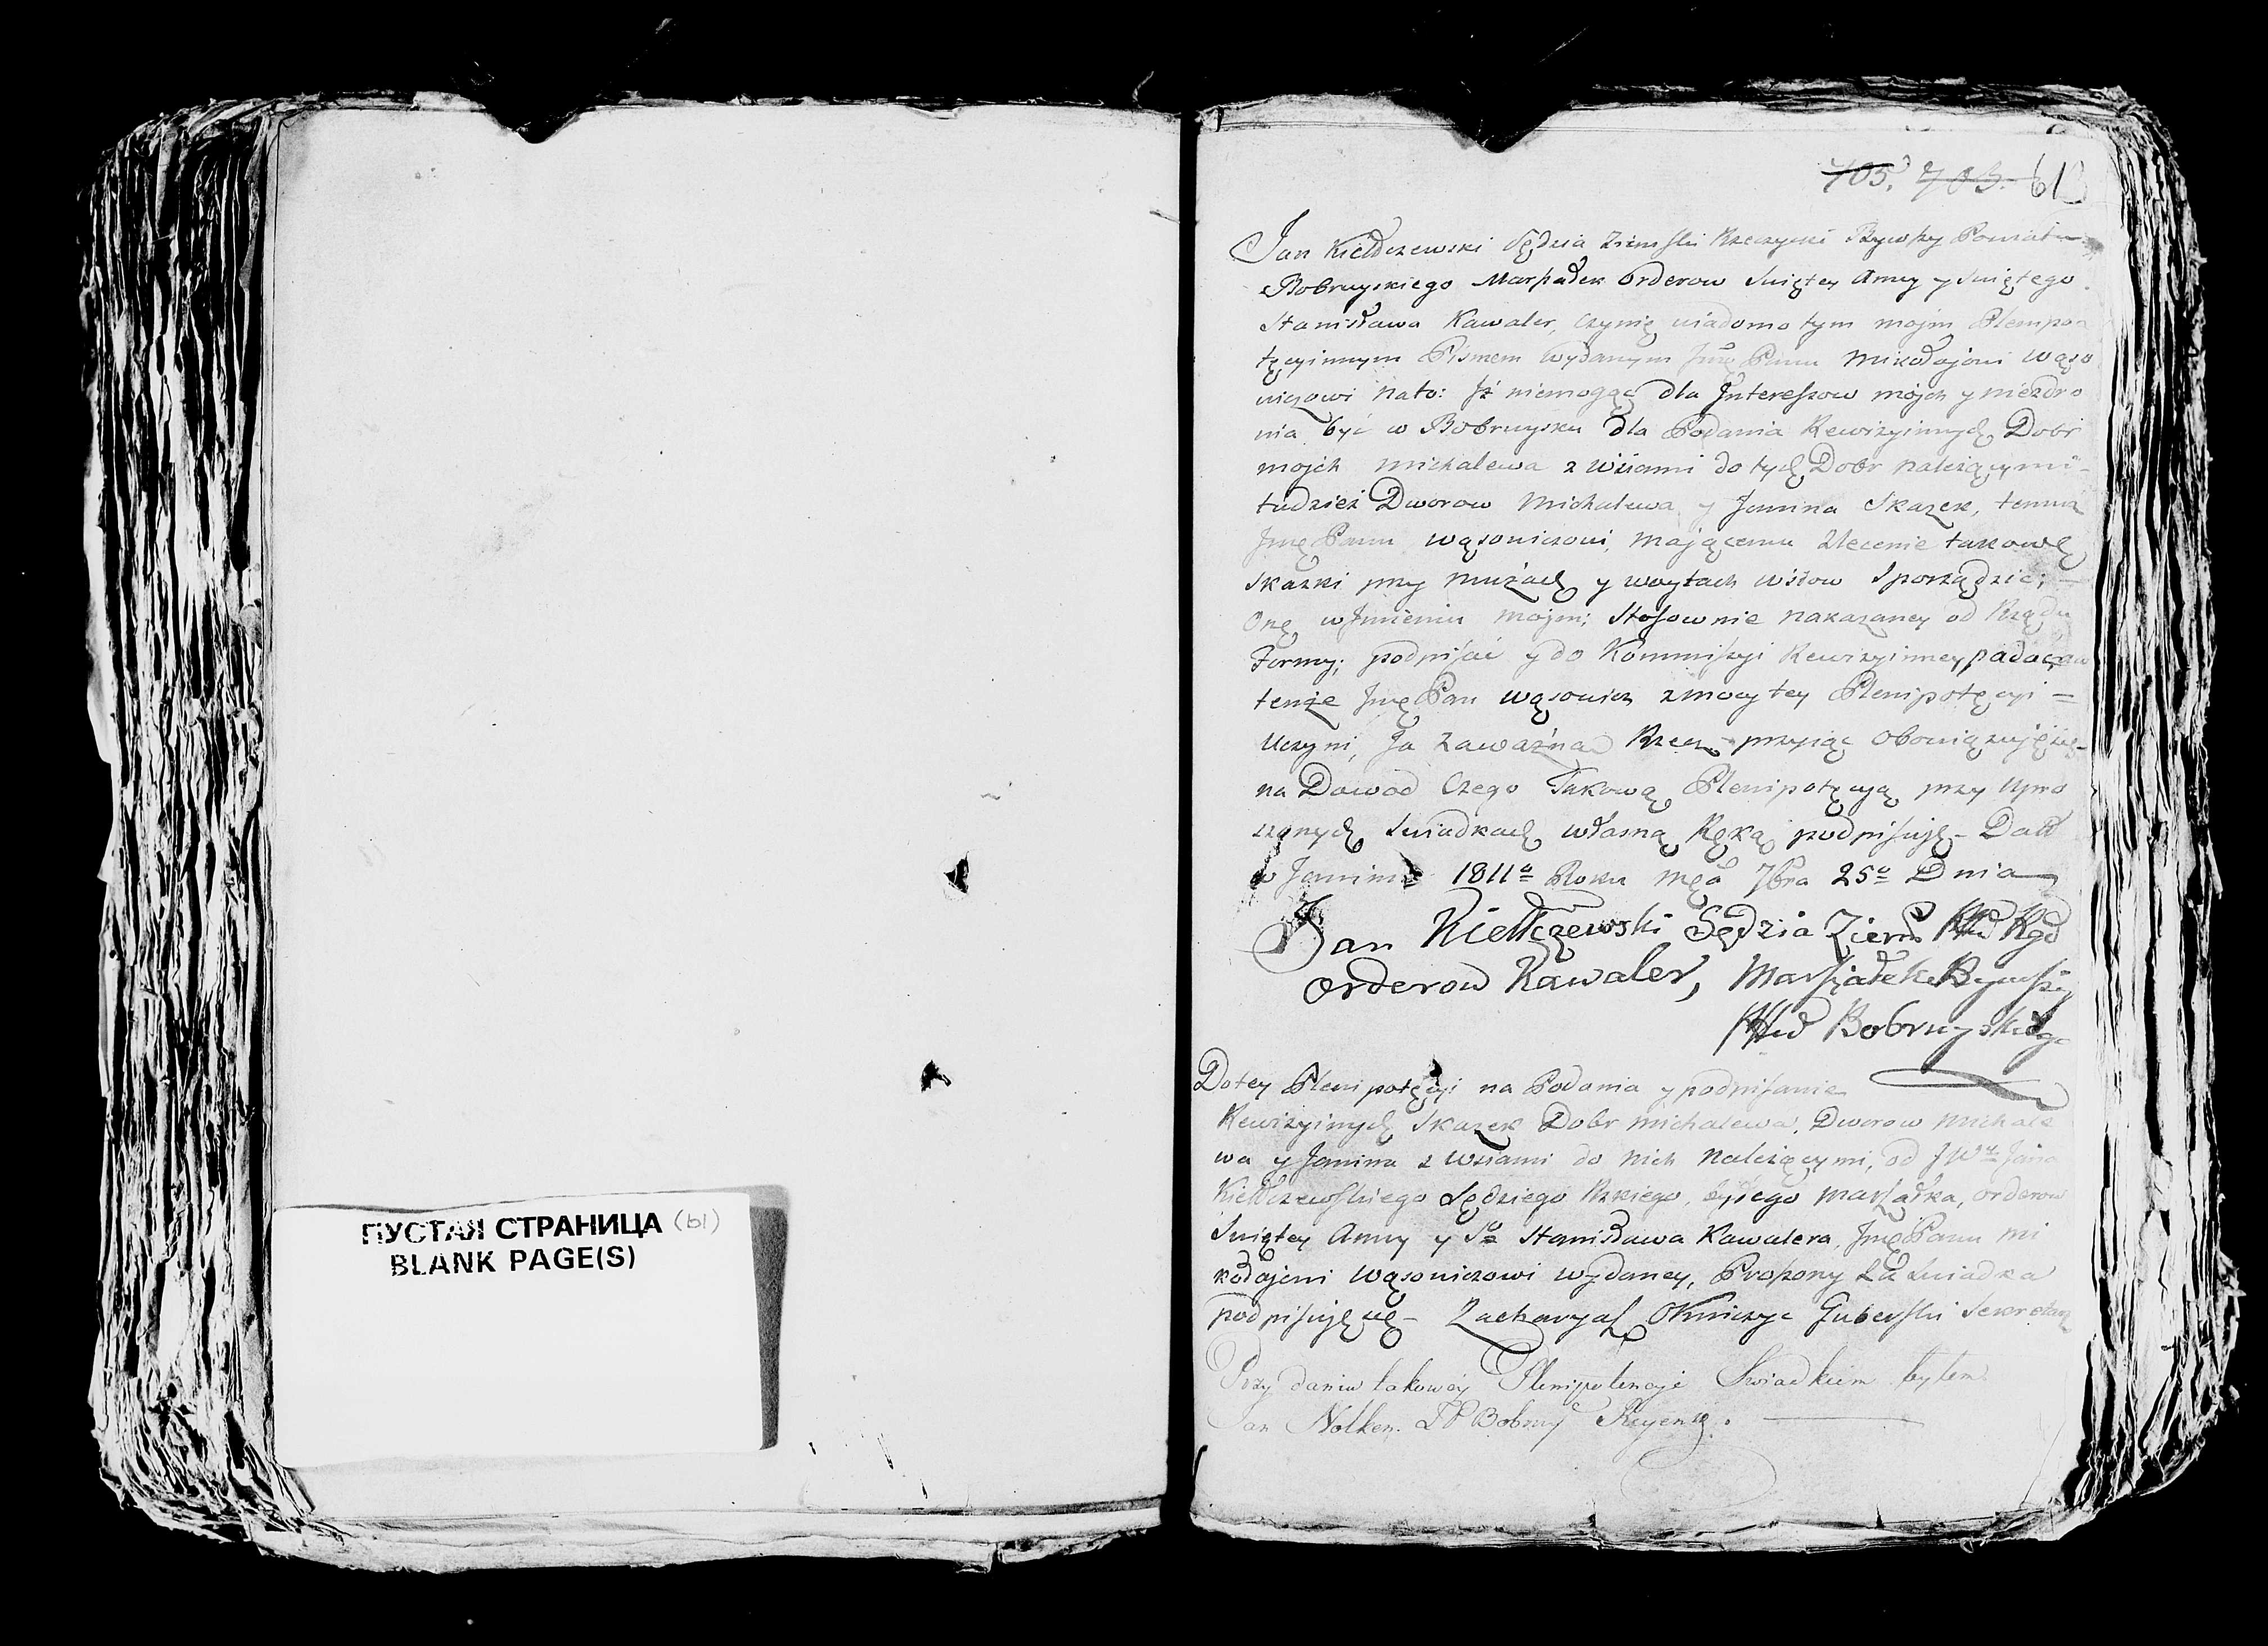 ПУСТАЯ СТРАНИЦА (ы)
BLANK PAGE(S)
705. 703. 613
Jan Kiełdczewski Sędzia Ziemski Rzeczycki Bywszy Powiatu
Bobruyskiego Marszałek orderow Swiętey Anny y Swiętego
Stanisława Kawaler, czynię wiadomo tym mojm Plenipo
tęcyinnym Pismem wydanym Jmę Panu Mikołajowi Wąso
wiczowi na to: Jż niemogąc dla Jnteressow mojch y niezdro
wia być w Bobruysku dla Podania Rewizyinnych Dobr
mojch Michalewa z Wsiami do tych Dobr należącymi-
tudzież Dworow Michalewa y Janina Skazek, temuż
Jmę Panu Wąsowiczowi, mającemu Zlecenie takowę
Skazki przy mużach y woytach wsiow Sporządzić;
Onę w Jmieniu mojm; Stosownie nakazaney od Rządu
Formy; podpisać y do Kommissyi Rewizyinney padać
tenże Jmę Pan Wąsowicz z mocy tey Plenipotęcyi =
Uczyni, Ja za ważną Rzecz przyiąć obowięzuję się-
na Dowod Czego Takową Plenipotęcyą przy Upro
szonych Swiadkach własną Ręką podpisuję- Datt
w Janinie 1811º Roku Mca 7bra 25º Dnia
Jan Kiełłczewski Sędzia Ziem Rzd
orderow Kawaler, Marszałek Bywszy
Bobruyskiego
Do tey Plenipotęcyi na Podania y podpisanie
Rewizyinych Skazek Dobr Michalewa, Dworow Michale
wa y Janina z Wsiami do nich należącymi, od JW Jana
Kiełdczewskiego Sędziego Rzkiego, byłego Marszałka, orderow
Swiętey Anny y Sº Stanisława Kawalera, Jmę Panu Mi
kołajowi Wąsowiczowi wydaney, Proszony za Swiadka
podpisuję się- Zacharyasz Okuliczyc Guberski Sekretarz
Przy daniu takowey Plenipotencyi Swiadkiem byłem
Jan Nolken.